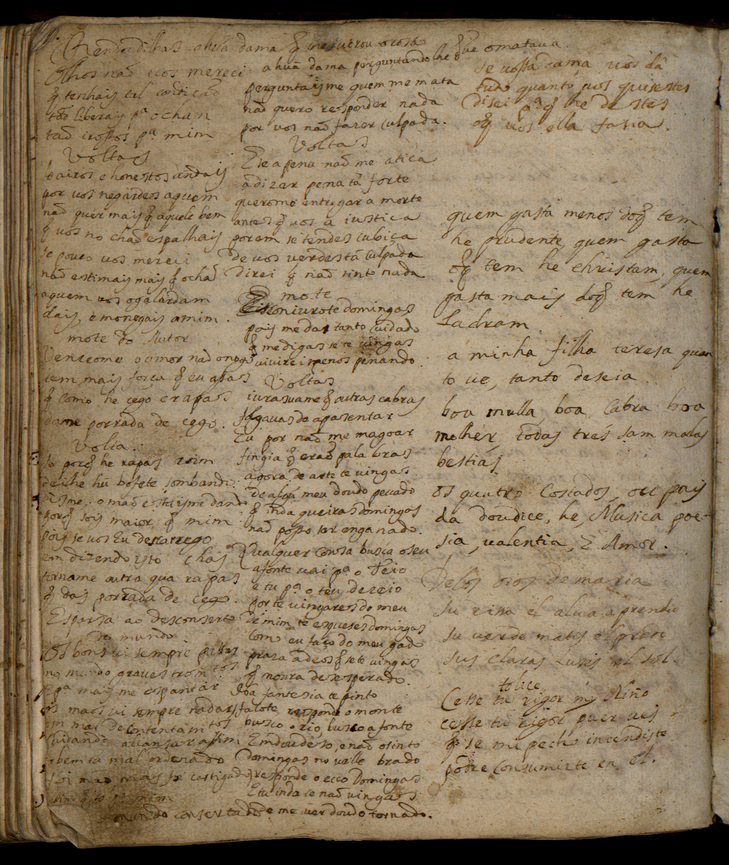 Olhos não vos mereci
q̃ tenhais tal condicão
tão liberais pª o chan
tão irosos pª mim
Voltas
baixos e honestos andais
por vos negardes a quem
não quer mais q̃ aquele bem
q̃ vos no chão espalhais
se pouco vos mereci
não estimais mais q̃ o chão
a quem vos o galardam
dais, e mo negais a mim.
mote do Autor
Venceome o amor não o nego
tem mais força q̃ eu assas
q̃ como he cego e rapas
dame porrada de cego.
Volta.
So porq̃ he rapas roim
deilhe hũ bofete sombando
disme, o mao estaisme dando
porq̃ sois maior q̃ mim
pois se vos eu descarrego
em dizendo isto chas
torname outra qua rapas
q̃ das porrada de cego.
Esparsa ao desconserto
do mundo
Os bons vi sempre passar
no mundo graves tromentos
e pª mais me espantar
os maos vi sempre nadar
em mar de contentamtos
Cuidando alcansar assim
o bem tam mal ordenado
fui mao mas fui castigado
o mundo consertado
a hũa dama perguntandolhe que o matava.
perguntaisme quem me mata
não quero responder nada
por vos não fazer culpada.
Voltas
E se a pena não me atica
a dizer pena tã forte
queromo entregar a morte
antes q̃ vos a iustica
porem se tendes cubica
de vos verdes tã culpada
direi q̃ não sinto nada
mote
Esconiurote domingas
pois me das tanto cuidado
q̃ me digas se te vingas
viuirei menos penando.
Voltas
iurasvame q̃ outras cabras
folgavas de apasentar
Eu por não me magoar
fingia q̃ erão palabras
agora de arte te vingas
de algũ meu doudo pecado
q̃ inda queiras domingos
não posso ser enganado.
Qualquer cousa busca o seu
a fonte vai pª o Teio
e tu pª o teu deseio
por te vingares do meu
de mim te esqueses domingas
como eu faço do meu gado
praza a deos q̃ se te vingas
q̃ morra desesperado.
Na fantesia te pinto
falote responde o monte
busco o rio, busco a fonte
Emdoudeso, e não o sinto
domingas no valle brado
responde o ecco domingas
E tu inda te não vingas
de me ver doudo tornado.
se vossa dama vos dá
tudo quanto vos quisestes
disei pª q̃ lhe destes
o q̃ vos ella fasia.
quem gasta menos doq̃ tem
he prudente, quem gasta
oq̃ tem he christam, quem
gasta mais doq̃ tem he
Ladram.
a minha filha teresa quan
to ve, tanto deseia
boa mulla boa Cabra boa
molher, todas tres sam malas
bestias.
os quatro Costados, ou pais
da doudice, he, Musica poe-
sia, valentia, E Amor.
De los oios de maria
su risa el alva aprendio
su verde mates el prado
sus claras luses el sol.
Cesse tu rigor my Niño
cesse tu rigor pues ves
q̃ se mi pecho incendiste
podre consumirte en el.